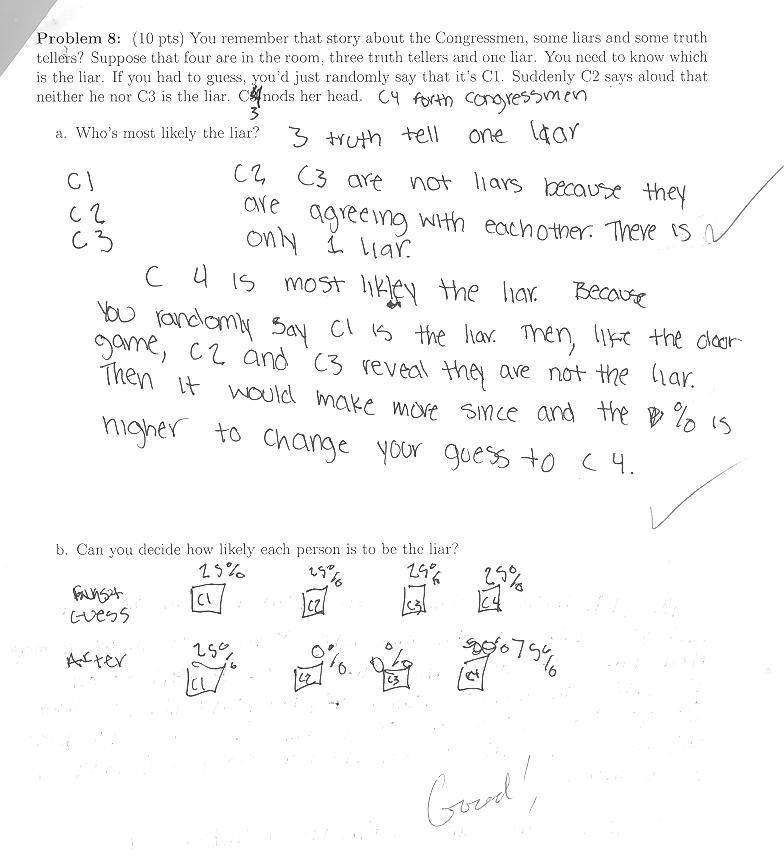 Problem 8: (10 pts) You remember that story about the Congressmen, some liars and some truth
tellers? Suppose that four are in the room, three truth tellers and one liar. You need to know which
is the liar. If you had to guess, you'd just randomly say that it's C1. Suddenly C2 says aloud that
neither he nor C3 is the liar. C nods her head. C4 forth congressmen
3
a. Who's most likely the liar? 3 truth tell one liar
C1
C2
C3
C2 C3 are not liars because they
are agreeing with eachother. There is
only 1 liar.
C 4 is most likley the liar. Because
You randomly say C1 is the liar. Then, like the door
game, C2 and C3 reveal they are not the liar.
Then it would make more since and the % is
higher to change your guess to C4.
b. Can you decide how likely each person is to be the liar?
25% 25% 25% 25%
Guess C1 C2 C3 C4
After 25% 0% 0% 75%
C1 C2 C3 C4
Good!